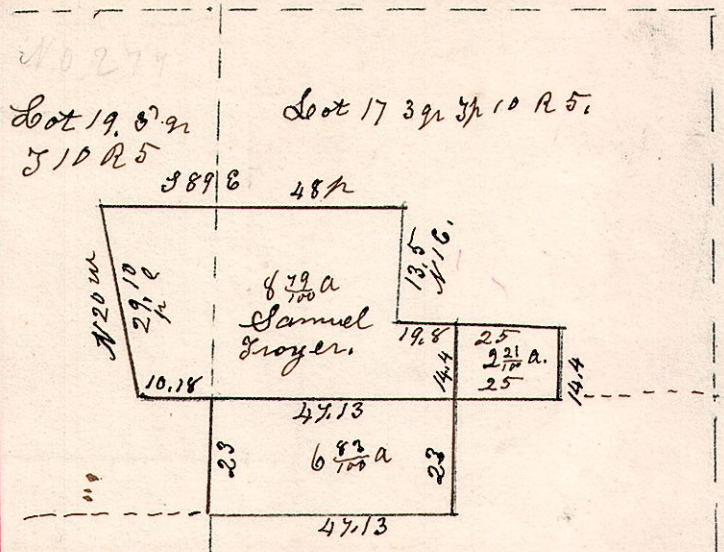 No 277
Lot 19. 3 qr
T 10 R 5
Lot 17 3 qr Tp 10 R 5.
S 89 E
48 p
N 20 W
29.10
p
13.5
N 1 E.
8 79/100 a
Samuel
Troyer.
19.8
14.4
25
2 21/100 a.
25
14.4
10.18
47.13
23
6 83/100 a
23
47.13